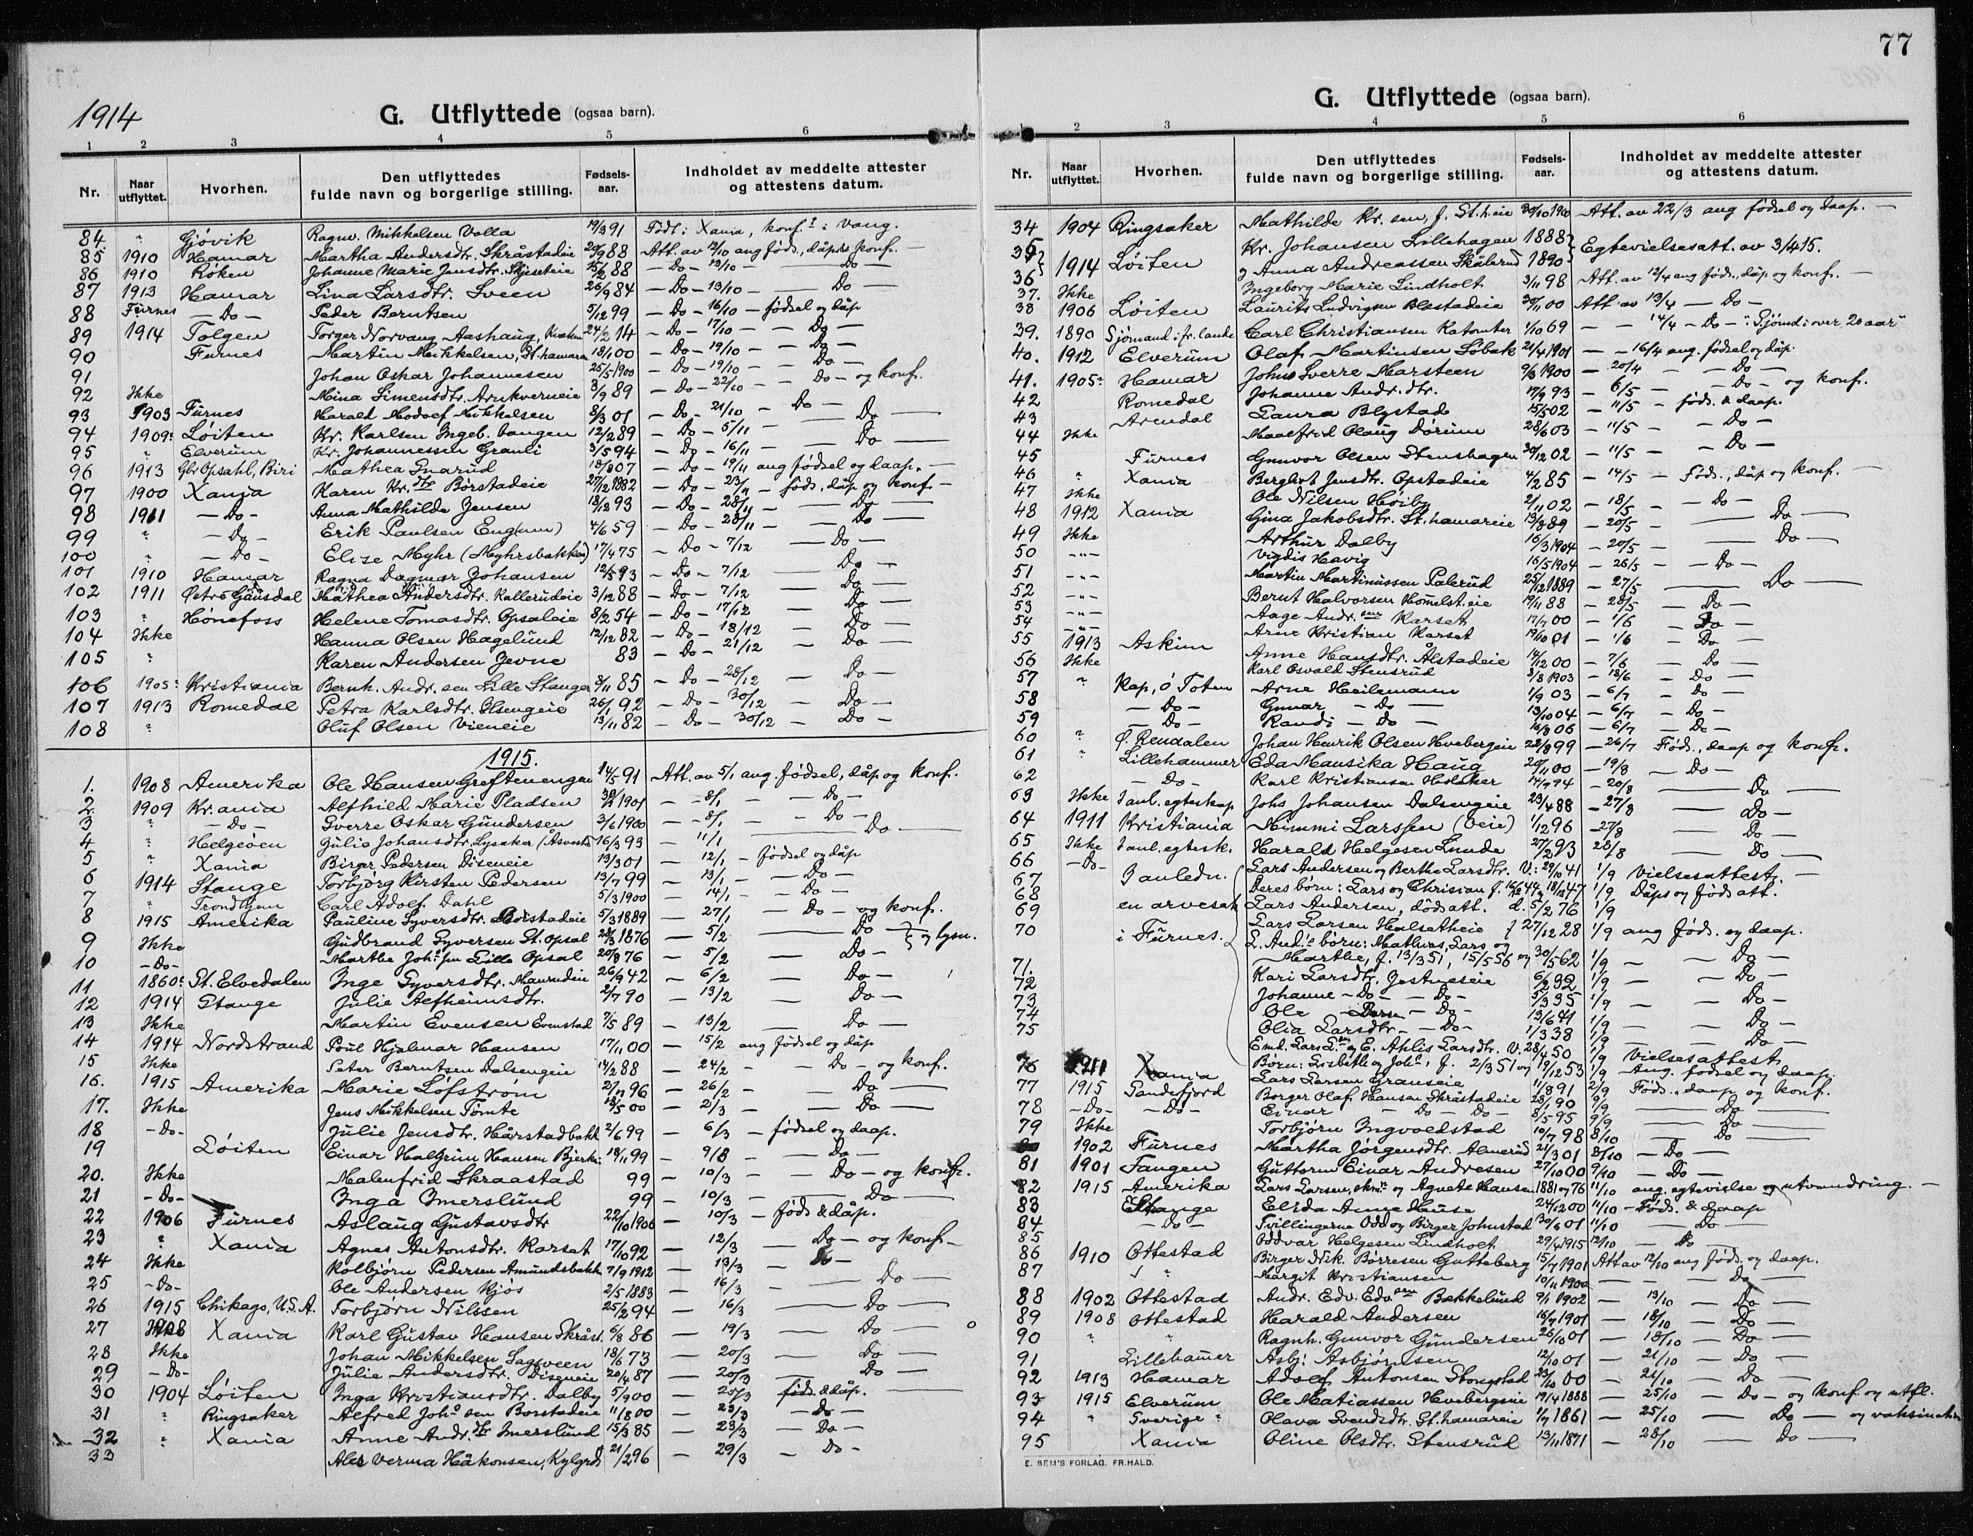 1914
G. Utflyttede (ogsaa barn).
1 2 3 4 5 6
Nr. Naar utflyttet. Hvorhen. Den utflyttedes fulde navn og borgerlige stilling. Fødsels-aar. Indholdet av meddelte attester og attestens datum.
84 " Gjøvik Ragnv. Mikkelsen Valla 91 Født i Xania, konf. i Vang.
85 1910 Hamar Martha Andersdtr. Skråstadeie 88 Att. av 12/10 ang føds., dåp & konf. —
86 1910 Røken Johanne Marie Jensdtr. 88 — Do — 13/10 — Do —
87 1913 Hamar Lina Larsdtr. Sveen 26/9 84 — Do — 13/10 — Do —
88 Furnes — Do — Peder Berntsen 5/12 99 — Do — 16/10 — fødsel og dåp
89 1914 Tolgen Torger Norvang Aashaug, 24/2 14 — Do — 17/10 — Do —
90 Furnes Martin Mikkelsen, St. hamara 18/1 00 — Do — 19/10 — Do —
91 Johan Oskar Johannesen 25/5 1900 — Do — 19/10 — Do —
92 Ikke Mina Simensdtr. Arnkverneie 3/9 89 — Do — 22/10 — Do — og konf.
93 1903 Furnes Harald Modolf Mikkelsen 8/3 01 — Do — 21/10 — Do —
94 1909 Løiten Kr. Karlsen Ingeb. vangen 12/2 89 — Do — 5/11 — Do —
95 " Elverum Kr. Johannessen Granli 3/5 94 — Do — 16/11 — Do —
96 1913 Gbr. Opsahl, Biri Mathea Snarud 18/8 07 — Do — 19/11 ang fødsel og daap. —
97 1900 Xania Karen Kr. dtr Børstadeie 27/12 1882 — Do — 23/11 — føds., dåp og konf —
98 1911 — Do — Anna Mathilde Jensen 18/2 93 — Do — 28/11 — Do —
99 " — Do — Erik Paulsen 4/6 59 — Do — 28/11 — Do —
100 " — Do — Elise Myhr (Myhrsbakken) 17/4 75 — Do — 7/12 — Do —
101 1910 Hamar Ragna Dagmar Johansen 12/5 93 — Do — 7/12 — Do —
102 1911 Østre Gausdal Mathea Andersdtr. Kallerudeie 3/12 88 — Do — 7/12 — Do —
103 " Hønefoss Helene Tomasdtr. Opsaleie 8/2 54 — Do — 17/12 — Do —
104 Ikke Hanna Olsen Hagelund 12/12 82 — Do — 18/12 — Do —
105 " Karen Andersen Jevne 83 — Do — 21/12 — Do —
106 1905 Kristiania Bernh. Andr. sen Lille Stange 3/11 85 — Do — 28/12 — Do —
107 1913 Romedal Petra Karlsdtr. 26/1 92 — Do — 30/12 — Do —
108 " Oluf Olsen Vieneie 13/11 82 — Do — 30/12 — Do —
1915.
1. 1908 Amerika Ole Hansen Greftenengen 14/5 91 Att. av 5/1 ang. fødsel, dåp og konf.
2. 1909 Kr.ania Alfhild Marie Pladsen 1901 — 8/1 — Do —
3 " — Do — Sverre Oskar Gundersen 3/6 1900 — 8/1 — Do —
4 " Helgeøen Julie Johansdtr. Lysaker 16/3 93 — 11/1 — Do —
5 " Xania Birger Pedersen Diseneie 13/3 01 — 12/1 — fødsel og dåp
6 1914 Stange Torbjørg Kirsten Pedersen 13/7 99 — 13/1 — Do —
7 " Trondhjem Carl Adolf Dahl 5/3 1900 — 14/1 — Do —
8 1915 Amerika Pauline Syversdtr. Børstadeie 5/3 1889 — 27/1 — Do — og konf.
9 Ikke Gudbrand Syversen St. Opsal 1876 — 5/2 — Do — og lysn.
10 — Do — Marthe Joh. sen Lille Opsal 20/8 76 — 5/2 — Do —
11 1860 St. Elvedalen Inge Syversdtr. 26/9 42 — 6/2 — Do —
12 1914 Stange Julie Alfheimsdtr. 2/7 90 — 13/2 — Do —
13 Ikke Martin Evensen Evenstad 7/5 89 — 13/2 — Do —
14 1914 Nordstrand Poul Hjalmar Hansen 17/11 00 — 15/2 ang fødsel og dåp
15 Ikke Peter Berntsen Dalsengeie 14/2 88 — 24/2 — Do — og konf.
16. 1915 Amerika Marie Löfstrøm 27/11 96 — 26/2 — Do —
17. Ikke Jens Mikkelsen Tomte 18/5 00 — 2/3 — Do —
18 — Do — Julie Jensdtr. Hårstadbakk 2/6 99 — 6/3 — fødsel og daap.
19 Løiten Einar Halgrim Hansen Bjerke 18/11 99 — 9/8 — Do —
20. Ikke Malenfrid Skraastad 99 — 10/3 — Do — og konfr.
21 — Do — Inga Imerslund 99 — 10/3 — Do —
22 1906 Furnes Aslaug Gustavsdtr 22/10 1906 — 10/3 — føds & dåp.
23 " Xania Agnes Antonsdtr. Karset 17/10 92 — 12/3 — Do — og konf —
24 Ikke Kolbjørn Pedersen Amundsbakk 7/9 1912 — 13/3 — Do —
25 — Do — Ole Andersen Kjos 2/5 1883 — 16/3 — Do —
26 1915 Chikago, U.S.A. Torbjørn Nilssen 25/2 94 — 16/3 — Do —
27 1908 Xania Karl Gustav Hansen Skråst. 6/8 86 — 19/3 — Do —
28 Ikke Johan Mikkelsen Sagveen 18/6 73 — 20/3 — Do —
29 — Do — Julie Andersdtr. Diseneie 20/4 87 — 20/3 — Do —
30 1904 Løiten Inga Kristiansdtr. Dalby 5/9 00 — 20/3 føds & dåp. —
31 " Ringsaker Alfred Joh. sen Børstadeie 11/8 00 — 23/3 — Do —
32 " Xania Anne Andr. dtr Imerslund 15/3 85 — 23/3 — Do —
33 Alex Verma Håkonsen, 21/2 96 — 29/3 — Do —
77
G. Utflyttede (ogsaa barn).
1 2 3 4 5 6
Nr. Naar utflyttet. Hvorhen. Den utflyttedes fulde navn og borgerlige stilling. Fødsels-aar. Indholdet av meddelte attester og attestens datum.
34 1904 Ringsaker Mathilde Kr. sen, 30/10 1900 Att. av 22/3 ang fødsel og daap. —
35 Kr. Johansen Lillehagen 1888 Egtevielsesatt. av 3/4 15.
36 1914 Løiten og Anna Andreassen Skålerud 1890
37. Ikke Ingeborg Marie Lindholt 3/11 98 Att. av 12/4 ang føds., dåp og konf. —
38 1906 Løiten Laurits Ludvigsen Blestadeie 00 Att av 13/4 — Do —
39. 1890 Sjömand i fr. lande Carl Christiansen Katomter 1/10 69 — 14/4 — Do — "Sjømd i over 20 aar"
40. 1912 Elverum Olaf Martinsen Løbak 21/4 1901 — 16/4 ang. fødsel og dåp.
41. 1905 Hamar Johs Sverre Marsteen 9/6 1900 — 20/4 — Do —
42 Romedal Johanne Andr. dtr. 17/9 93 — 6/5 — Do — og konf.
43 Arendal Laura Blystad 15/5 02 — 11/5 — føds. & daap.
44 Ikke Maalfrid Olaug Dørum 28/6 03 — 11/5 — Do —
45 Furnes Gunvor Olsen Stenshagen 30/12 02 — 11/5 — Do —
46 " Xania Bergliot Jensdtr. Opstadeie 4/2 85 — 14/5 — Føds., dåp og konf. —
47 Ikke Ole Nilsen Høiby 2/11 02 — 18/5 — Do —
48 1912 Xania Gina Jakobsdtr. St. hamareie 13/8 89 — 20/5 — Do —
49 Ikke Arthur Dalby 16/3 1904 — 20/5 — Do —
50 -"- Vigdis Havig 16/5 1904 — 26/5 — Do —
51 -"- Martin Martinussen Palerud 25/12 1889 — 27/5 — Do —
52 -"- Bernt Halvorsen Hommelst.eie 19/11 88 — 28/5 — Do —
53 -"- Aage Andr. sen Karset 17/7 00 — 1/6 — Do —
54 -"- Arne Kristian Karset 19/10 01 — 1/6 — Do —
55 1913 Askim Anne Hansdtr. Alstadeie 14/12 00 — 7/6 — Do —
56 Ikke Karl Osvald Stensrud 3/8 1903 — 18/6 — Do —
57 " Kap, Ö Toten Arne Heilemann 1/9 03 — 6/7 — Do —
58 — Do — Gunnar — Do — 13/10 04 — 6/7 — Do —
59 — Do — Randi — Do — 16/8 06 — 6/7 — Do —
60 " Ø. Rendalen Johan Henrik Olsen Hvebergeie 22/8 99 — 26/7 Føds., daap og konf.
61 " Lillehammer Eda Mansika Haug 20/11 00 — 19/8 — Do —
62 — Do — Karl Kristiansen Holaker 14/7 94 — 20/8 — Do —
63 Ikke I anl. egteskap Johs Johansen Dalsengeie 23/4 88 — 27/8 — Do —
64 1911 Kristiania Mimmi Larssen (Veie) 1/12 96 — 27/8 — Do —
65 Ikke I anl. egtesk. Harald Helgesen Lunde 27/2 93 — 28/8 — Do —
66 — Do — Lars Andersen og Berthe Larsdtr. V. 29/10 41 1/9 Vielsesattest, —
67 I anledn. Deres børn: Lars og Christian f. 44, 18/12 47 1/9 Dåps og føds att.
68
69 en arvesak Lars Andersen, døds att. d. 5/2 76 1/9
70 i Furnes. Lars Larsen Halsetheie f 27/12 28 1/9 ang føds. og daap.
L. And.s børn: Mathias, Lars og
71. Marthe, f. 13/3 51, 15/5 56 og 30/5 62 1/9 — Do —
72 Kari Larsdtr. Jestneseie 6/2 32 1/9 — Do —
73 Johanne — Do — — Do — 5/3 35 1/9 — Do —
74 Ole Larsen — Do — 13/6 41 1/9 — Do —
75 Olia Larsdtr — Do — 1/3 38 1/9 — Do —
Emd. Lars L. sen og E. Aplis Larsdtr. V. 28/4 50 1/9 Vielsesattest.
Børn: Lisbeth og Joh., f. 2/3 51 og 19/12 53 1/9 Ang. fødsel og daap.
76 1911 Xania Lars Larsen Granseie 11/8 91 2/9 Føds., daap og konf.
77 1915 Sandefjord Borger Olaf Hansen Skråstadeie 28/1 90 9/9 — Do —
78 — Do — — Do — Einar — Do — Do — 8/5 95 9/9 — Do —
79 Ikke Torbjørn Ingvoldstad 10/7 98 8/10 — Do —
80 1902 Furnes Martha Jørgensdtr. Almerud 21/3 01 8/10 — Do —
81 1901 Tangen Guttorm Einar Andresen 27/10 00 9/10 — Do —
82 1915 Amerika Lars Larsen, og Agnete Hansen 1881 og 76 11/10 ang. egtevielse og utvandring. —
83 Stange Elida Anne Hause 24/12 00 11/10 — Føds. & daap
84 — Do — Tvillingerne Odd og Birger Johnstad 30/6 01 11/10 — Do —
85 Oddvar Helgesen Lindholt 29/4 1915 12/10 — Do —
86 1910 Ottestad Birger Nik. Børresen Gutteberg 15/7 1901 Att av 12/10 ang føds og daap.
87 " Margit Kristiansen 10/11 1900 — — Do —
88 1902 Ottestad Andr. Edv. Edv. sen Bækkelund 9/1 1902 — 13/10 — Do —
89 1908 Ottestad Harald Andersen 16/7 1901 — 18/10 — Do —
90 " " Ragnh. Gunvor Gundersen 26/10 01 — 18/10 — Do —
91 Lillehamer Asbj. Asbjørnsen 12/10 01 — 21/10 — Do —
92 1913 Hamar Adolf Antonsen Stongstad 00 — 21/10 — Do —
93 1915 Elverum Ole Matiassen Hvebergeie 19/4 1888 — 25/10 — Do — og konf. og utfl.
94 " Sverige " Olava Svendsdtr. St. hamareie 1/7 1861 — 25/10 — Do — og vaksination
95 Xania Oline Olsdtr. Stensrud 13/11 1871 — 28/10 — Do —
E. SEM'S FORLAG. FR.HALD.